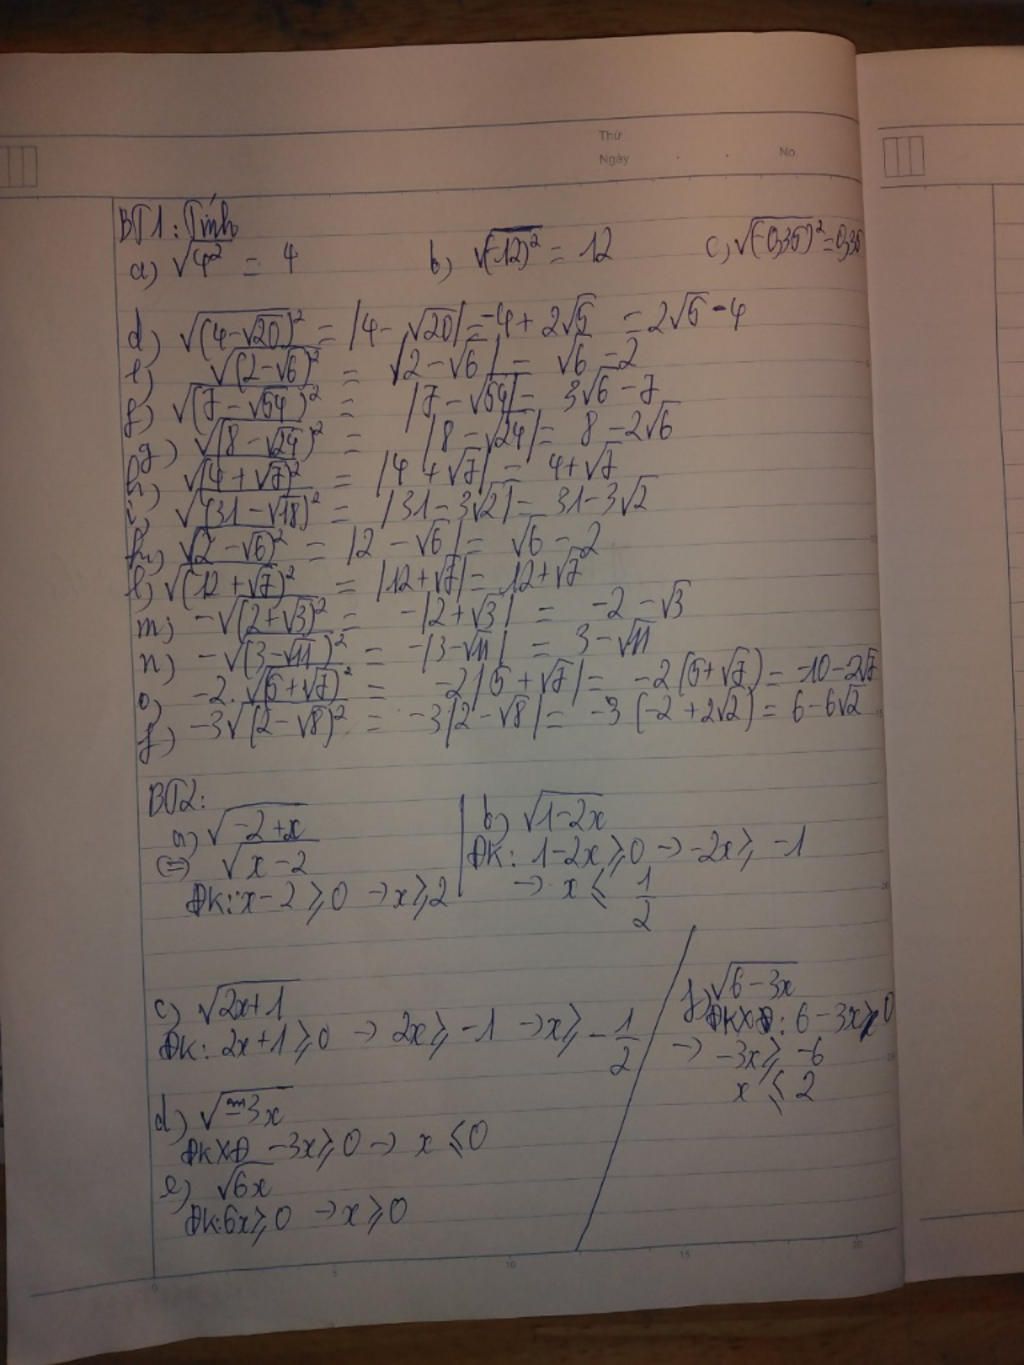 Thứ
Ngày . . No
BT1: Tính
a) √4² = 4 b) √(-12)² = 12 c) √(-0,35)² = 0,35
d) √(4-√20)² = |4-√20| = -4+2√5 = 2√5-4
e) √(2-√6)² = |2-√6| = √6-2
f) √(7-√54)² = |7-√54| = 3√6-7
g) √(8-√24)² = |8-√24| = 8-2√6
h) √(4+√7)² = |4+√7| = 4+√7
i) √(31-√18)² = |31-3√2| = 31-3√2
k) √(2-√6)² = |2-√6| = √6-2
l) √(12+√7)² = |12+√7| = 12+√7
m) -√(2+√3)² = -|2+√3| = -2-√3
n) -√(3-√11)² = -|3-√11| = 3-√11
o) -2.√(5+√7)² = -2|5+√7| = -2(5+√7) = -10-2√7
f) -3√(2-√8)² = -3|2-√8| = -3(-2+2√2) = 6-6√2
BT2:
a) √-2+x
(=) √x-2
ĐK: x-2≥0 → x≥2
b) √1-2x
ĐK: 1-2x≥0 → -2x≥-1
→ x ≤ 1/2
c) √2x+1
ĐK: 2x+1≥0 → 2x≥-1 → x≥-1/2
d) √-3x
ĐKXĐ -3x≥0 → x≤0
e) √6x
ĐK: 6x≥0 → x≥0
f) √6-3x
ĐKXĐ: 6-3x≥0
→ -3x≥-6
x ≤ 2
0 5 10 15 20